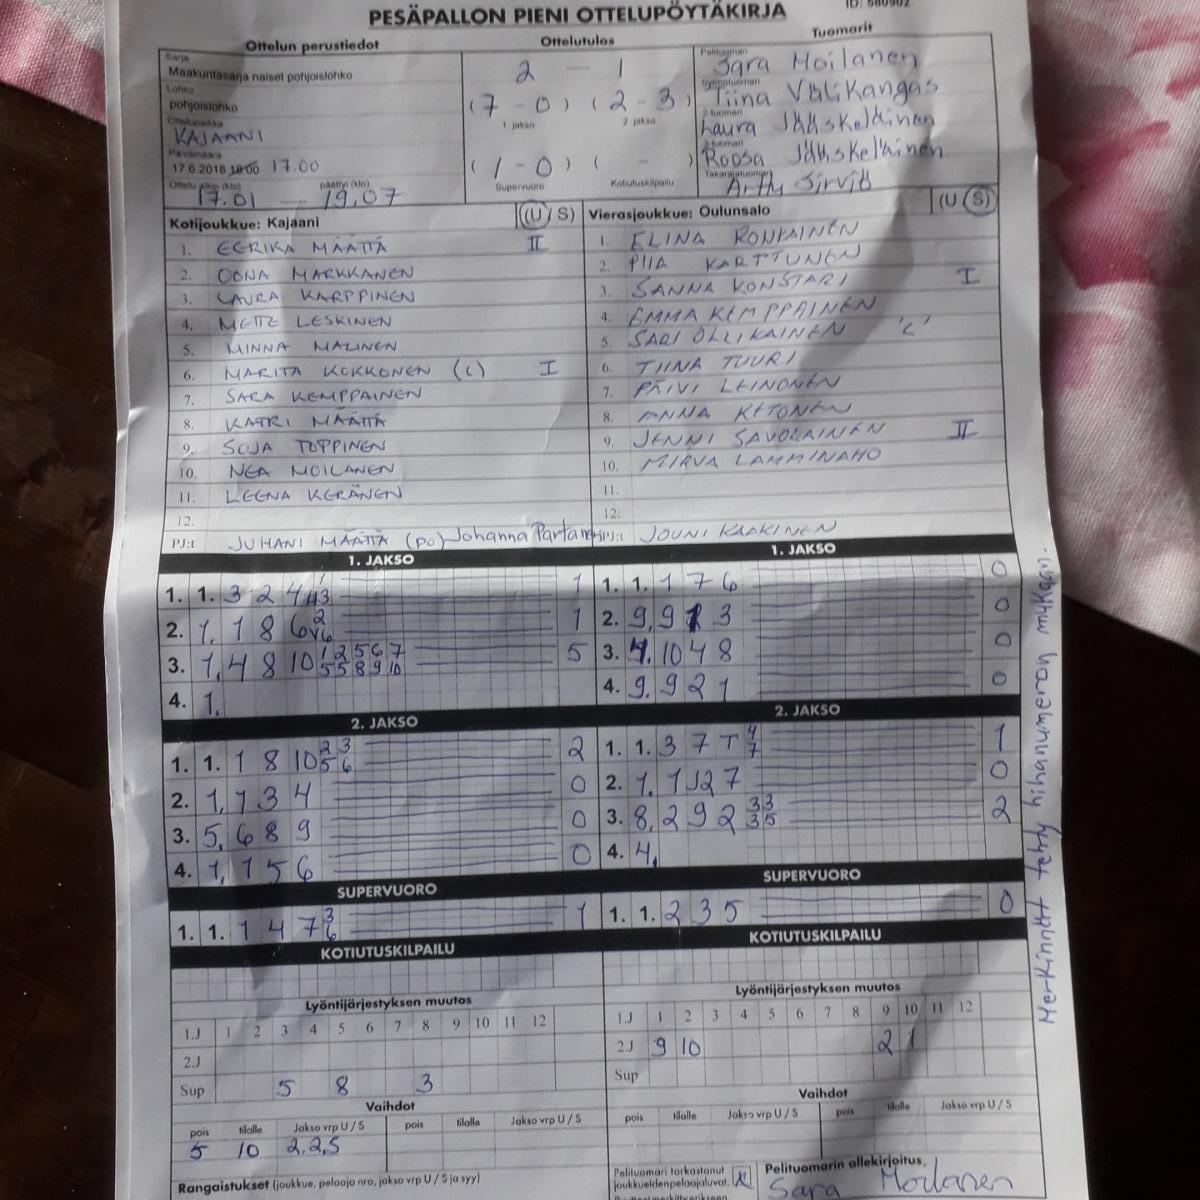 ID: 680902
PESÄPALLON PIENI OTTELUPÖYTÄKIRJA
Ottelun perustiedot
Ottelutulos
Tuomarit
Sarja
Maakuntasarja naiset pohjoislohko
Lohko
pohjoislohko
Ottelupaikka
KAJAANI
Päivämäärä
17.6.2018 18:00 17.00
Ottelu alkoi (klo) päättyi (klo)
17.01 — 19.07
2 — 1
(7 - 0) (2 - 3)
1 jakso 2 jakso
(1 - 0) ( - )
Supervuoro Kotiutuskilpailu
Pelituomari
Sara Moilanen
Syöttötuomari
Tiina Välikangas
2-tuomari
Laura Jääskeläinen
3-tuomari
Roosa Jääskeläinen
Takarajatuomari
Arttu Sirviö
Kotijoukkue: Kajaani (U/S)
1. EERIKA MÄÄTTÄ II
2. OONA MARKKANEN
3. LAURA KARPPINEN
4. METTE LESKINEN
5. MINNA MALINEN
6. MARITA KOKKONEN (C) I
7. SARA KEMPPAINEN
8. KATRI MÄÄTTÄ
9. SOJA TOPPINEN
10. NEA MOILANEN
11. LEENA KERÄNEN
12.
PJ:t JUHANI MÄÄTTÄ (PO) Johanna Partanen
Vierasjoukkue: Oulunsalo (U/S)
1. ELINA RONKAINEN
2. PIIA KARTTUNEN
3. SANNA KONSTARI I
4. EMMA KEMPPAINEN
5. SARI OLLIKAINEN 'C'
6. TIINA TUURI
7. PÄIVI LEINONEN
8. ANNA KETONEN
9. JENNI SAVOLAINEN II
10. MIRVA LAMMINAHO
11.
12.
PJ:t JOUNI KAAKINEN
1. JAKSO
1. 1. 3 2 4 1
2. 1. 1 8 6 1
3. 1. 4 8 10 1 2 5 6 7 5
5 5 8 9 10
4. 1.
1. JAKSO
1. 1. 1 7 6 0
2. 9. 9 2 3 0
3. 4. 10 4 8 0
4. 9. 9 2 1 0
2. JAKSO
1. 1. 1 8 10 2 3 2
5 6
2. 1. 1 3 4 0
3. 5. 6 8 9 0
4. 1. 1 5 6 0
2. JAKSO
1. 1. 3 7 T 4 1
7
2. 1. 1 2 7 0
3. 8. 2 9 2 3 3 2
3 5
4. 4.
SUPERVUORO
1. 1. 1 4 7 3 1
6
SUPERVUORO
1. 1. 2 3 5 0
KOTIUTUSKILPAILU
KOTIUTUSKILPAILU
Lyöntijärjestyksen muutos
1.J 1 2 3 4 5 6 7 8 9 10 11 12
2.J
Sup 5 8 3
Lyöntijärjestyksen muutos
1.J 1 2 3 4 5 6 7 8 9 10 11 12
2.J 9 10 2 1
Sup
Vaihdot
pois tilalle Jakso vrp U / S pois tilalle Jakso vrp U / S
5 10 2.2.S
Vaihdot
pois tilalle Jakso vrp U / S pois tilalle Jakso vrp U / S
Rangaistukset (joukkue, pelaaja nro, jakso vrp U / S ja syy)
Pelituomari tarkastanut
joukkueiden pelaajaluvat.
Pelituomarin allekirjoitus.
Sara Moilanen
Merkinnät tehty hihanumeron mukaan.